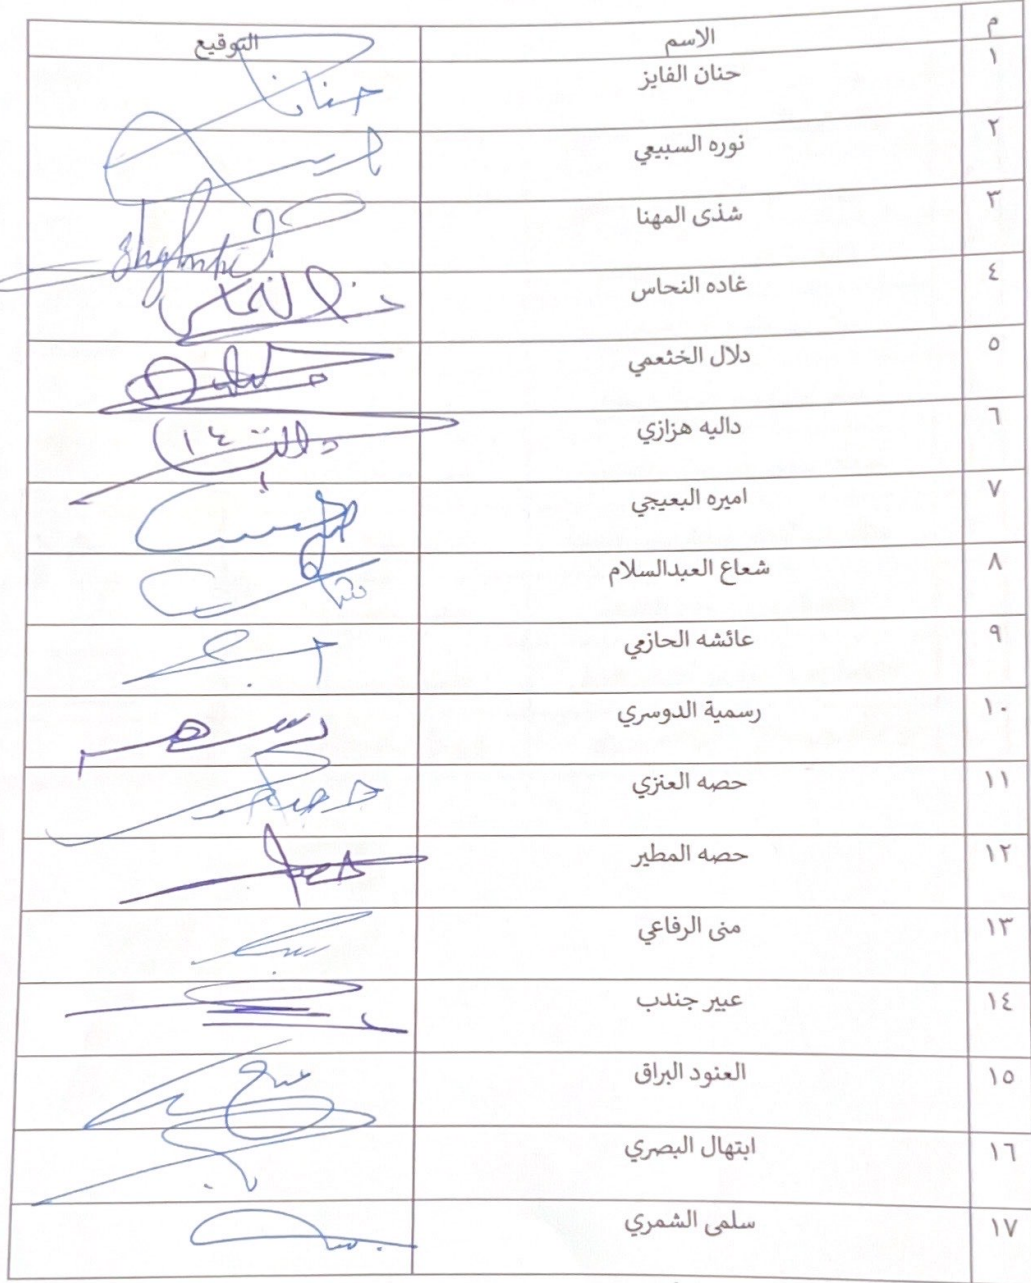 م الاسم التوقيع
١ حنان الفايز حنان
٢ نوره السبيعي
٣ شذى المهنا
٤ غاده النحاس
٥ دلال الخثعمي
٦ داليه هزازي
٧ اميره البعيجي
٨ شعاع العبدالسلام
٩ عائشه الحازمي
١٠ رسمية الدوسري
١١ حصه العنزي حصه
١٢ حصه المطير حصه
١٣ منى الرفاعي
١٤ عبير جندب
١٥ العنود البراق
١٦ ابتهال البصري
١٧ سلمى الشمري